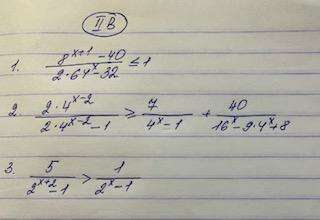 II В
1. (8^(x+1) - 40)/(2·64^x - 32) ≤ 1
2. (2·4^(x-2))/(2·4^(x-2) - 1) ≥ 7/(4^x - 1) + 40/(16^x - 9·4^x + 8)
3. 5/(2^(x+2) - 1) > 1/(2^x - 1)